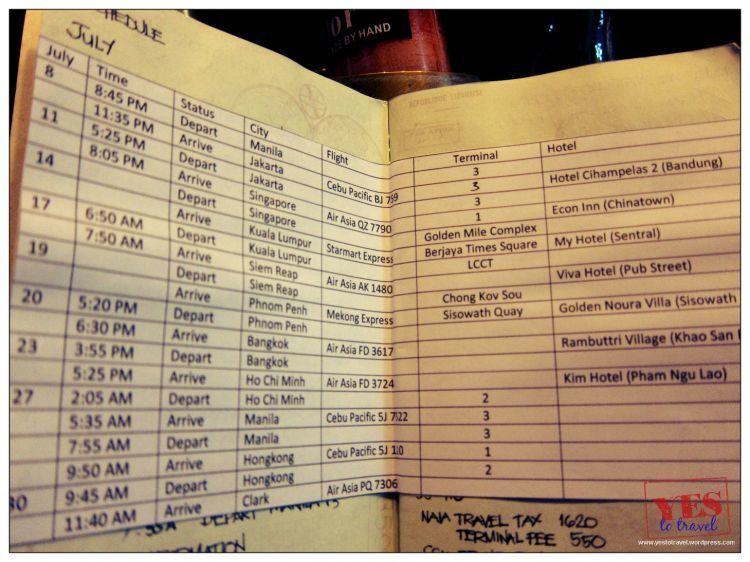 SCHEDULE
JULY
BY HAND
July Time Status City Flight Terminal Hotel
8 8:45 PM Depart Manila 3
11:35 PM Arrive Jakarta Cebu Pacific 3 Hotel Cihampelas 2 (Bandung)
11 5:25 PM Depart Jakarta 3
8:05 PM Arrive Singapore Air Asia QZ 7790 1 Econ Inn (Chinatown)
14 Depart Singapore Golden Mile Complex
Arrive Kuala Lumpur Starmart Express Berjaya Times Square My Hotel (Sentral)
17 6:50 AM Depart Kuala Lumpur LCCT
7:50 AM Arrive Siem Reap Air Asia AK 1480 Viva Hotel (Pub Street)
19 Depart Siem Reap Chong Kov Sou
Arrive Phnom Penh Mekong Express Sisowath Quay Golden Noura Villa (Sisowath
20 5:20 PM Depart Phnom Penh
6:30 PM Arrive Bangkok Air Asia FD 3617 Rambuttri Village (Khao San
23 3:55 PM Depart Bangkok
5:25 PM Arrive Ho Chi Minh Air Asia FD 3724 Kim Hotel (Pham Ngu Lao)
27 2:05 AM Depart Ho Chi Minh 2
5:35 AM Arrive Manila Cebu Pacific 5J 3
7:55 AM Depart Manila 3
9:50 AM Arrive Hongkong Cebu Pacific 5J 1
30 9:45 AM Depart Hongkong 2
11:40 AM Arrive Clark Air Asia PQ 7306
DEPART
NAIA TRAVEL TAX 1620
TERMINAL FEE 550
YES
to travel
www.yestotravel.wordpress.com